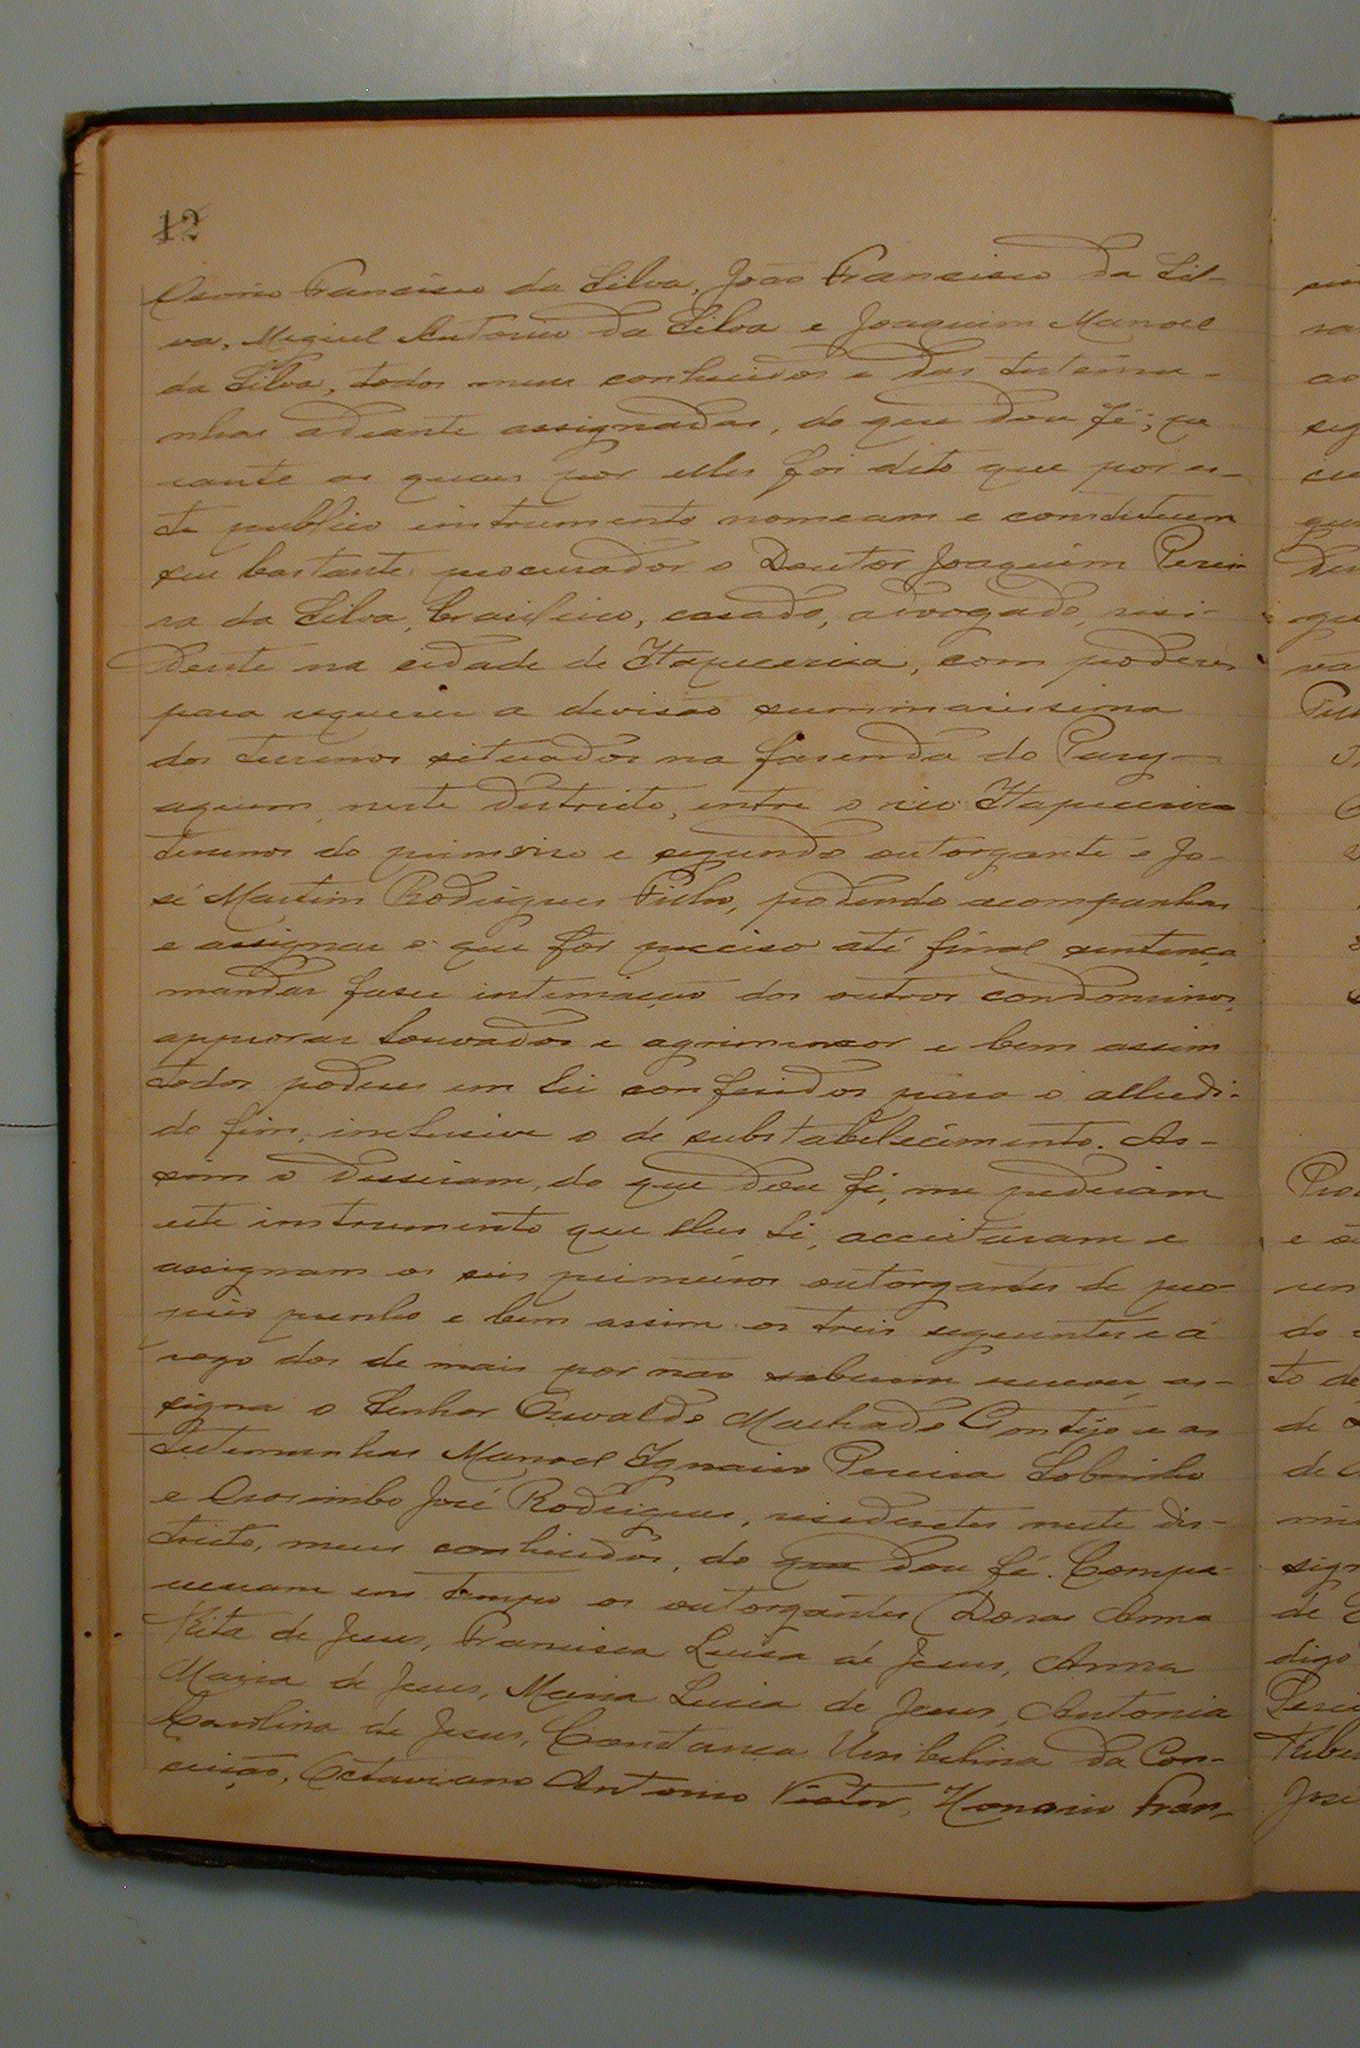 12
Osorio Francisco da Silva, João Francisco da Sil-
va, Miguel Antonio da Silva e Joaquim Manoel
da Silva, todos meus conhecidos e das testemu-
nhas adeante assignadas, do que dou fé; pe
rante as quaes por elles foi dito que por es-
te publico instrumento nomeam e constituem
seu bastante procurador o Doutor Joaquim Perei-
ra da Silva, brasileiro, casado, advogado, resi-
dente na cidade de Itapecerica, com poderes
para requerer a divisão summarissima
dos terrenos situados na fazenda do Pary-
aquem, neste districto, entre o rio Itapecerica
terrenos do primeiro e segundo outorgante e Jo-
sé Martins Rodrigues Filho, podendo acompanhar
e assignar o que fôr preciso até final sentença
mandar faser intimação dos outros condominos,
approvar louvados e agrimensor e bem assim
todos poderes em lei conferidos para o alludi-
do fim, inclusive o de substabelecimento. As-
sim o disseram, do que dou fé, me pediram
este instrumento que lhes li, acceitaram e
assignam os seis primeiros outorgantes de pro-
prio punho e bem assim os treis seguintes e á
rogo dos de mais por não saberem escrever, as-
signa o Senhor Oswaldo Machado Gontijo e as
testemunhas Manoel Ignacio Pereira Sobrinho
e Orosimbo José Rodrigues, residentes neste dis-
tricto, meus conhecidos, do que dou fé. Compa-
receram em tempo os outorgantes Donas Anna
Rita de Jesus, Francisca Luisa de Jesus, Anna
Maria de Jesus, Maria Luisa de Jesus, Antonia
Carolina de Jesus, Constança Umbelina da Con-
ceição, Octaviano Antonio Victor, Honorio Fran-